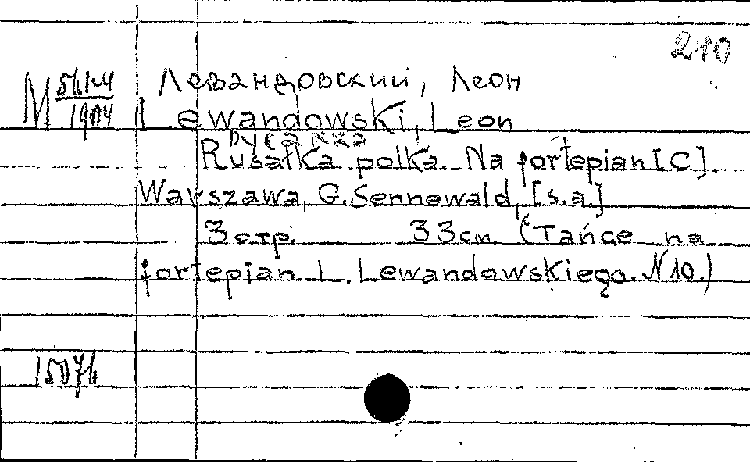 210
Левандовский, Леон
M
1904
Lewandowski, Leon
Русалка
Rusałka polka. Na fortepian [C].
Warszawa, G. Sennewald, [s.a.]
3 стр. 33 см. (Tańce na
fortepian L. Lewandowskiego. N 10.)